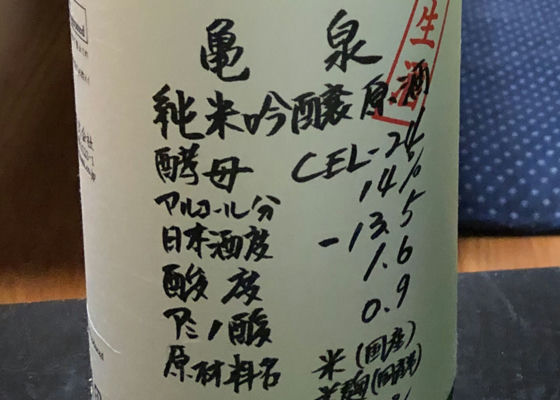 亀泉
生酒
純米吟醸原酒
酵母 CEL-24
アルコール分 14%
日本酒度 -13.5
酸度 1.6
アミノ酸 0.9
原材料名 米(国産)
米麹(国産米)